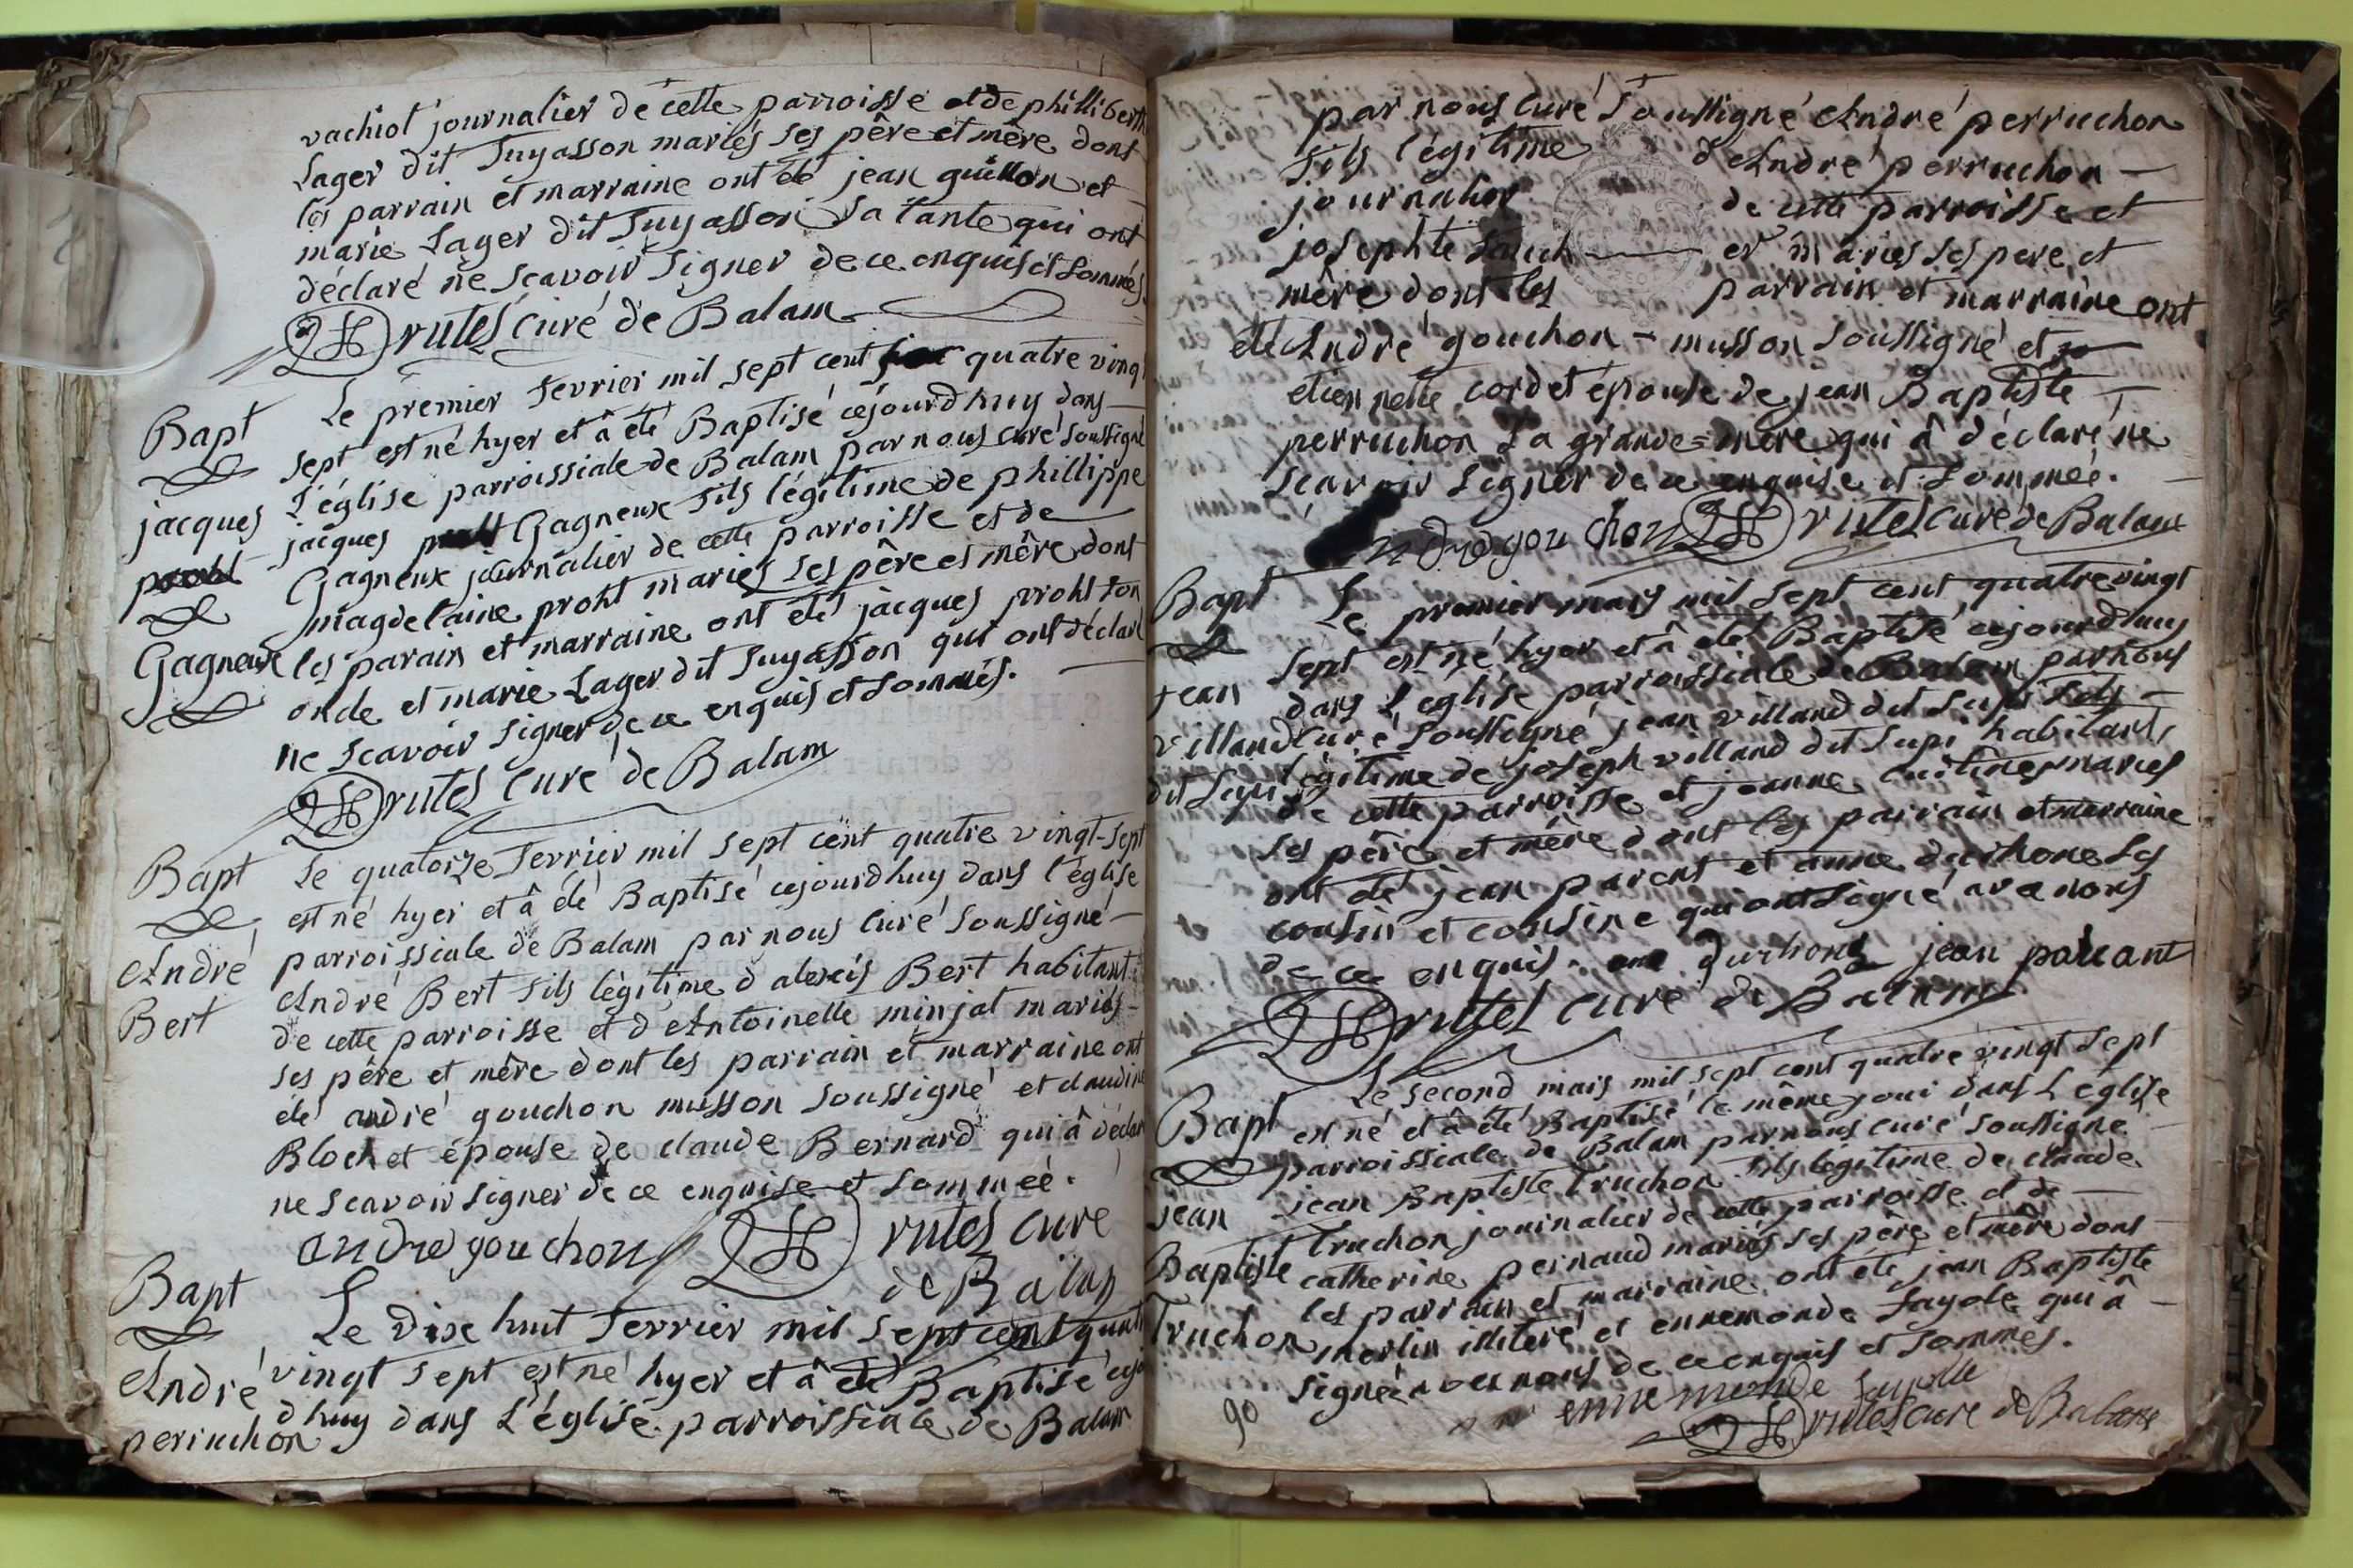 vachiot journalier de cette parroisse et de phillibert
Lager dit Suyasson mariés ses pêre et mêre dont
les parrain et marraine ont été jean guillon et
marie Lager dit Suyasson sa tante qui ont
déclaré ne scavoir signer de ce enquis et sommés
rutel curé de Balam
Bapt
Le premier fevrier mil sept cent quatre vingt
sept est né hyer et â été Baptisé cejourdhuy dans
L'église parroissiale de Balam par nous curé soussigné
jacques
jacques Gagneux fils légitime de phillippe
Gagneux journalier de cette parroisse et de
magdelaine proht mariés ses pêre et mêre dont
Gagneux
les parain et marraine ont été jacques proht son
oncle et marie Lager dit Suyasson qui ont déclaré
ne scavoir signer de ce enquis et sommés.
rutel curé de Balam
Bapt
Le quatorze fevrier mil sept cent quatre vingt-sept
est né hyer et â été Baptisé cejourdhuy dans l'église
parroissiale de Balam par nous curé soussigné
André
Bert
André Bert fils légitime d'alexis Bert habitant
de cette parroisse et d'Antoinette minjat mariés
ses pêre et mêre dont les parrain et marraine ont
été andré gouchon musson soussigné et claudine
Blochet épouse de claude Bernard qui â déclaré
ne scavoir signer de ce enquise et sommeé.
andre gouchon rutel cure
de Balan
Bapt
Le dixe huit fevrier mil sept cent quatre
André
perruchon
vingt sept est né hyer et â été Baptisé cejour
dhuy dans L'église parroissiale de Balam
par nous curé soussigné André perruchon
fils légitime d'André perruchon
journalier de cette parroisse et
josephte er mariés ses pere et
mère dont les parrain et marraine ont
été André gouchon - musson soussigné et
etiennette cordet épouse de jean Baptiste
perruchon sa grande=mère qui â déclaré ne
scavoir signer de ce enquise et sommeé.
andre gouchon rutel curé de Balam
Bapt
Le premier mars mil sept cent quatre vingt
sept est né hyer et â été Baptisé cejourdhuy
jean
dans L'eglise parroissiale de Balam par nous
villand
curé soussigné jean villand dit Supi fils
dit Supi
légitime de joseph villand dit Supi habitant
de cette parroisse et jeanne mariés
ses père et mère dont les parrain et marraine
ont été jean parent et anne duchone ses
cousin et cousine qui ont signé avec nous
de ce enquis. duchone jean parant
rutel curé de Balam
Bapt
Le second mars mil sept cent quatre vingt sept
est né et â été Baptisé le même jour dans L'église
parroissiale de Balam par nous curé soussigné
jean
Baptiste
Truchon
jean Baptiste Truchon fils légitime de claude
Truchon journalier de cette parroisse et de
catherine peinaud mariés ses père et mère dont
les parrain et marraine ont été jean Baptiste
merlin illiteré et ennemonde fayole qui â
signé avec nous de ce enquis et sommés.
ennemonde fayolle
rutel curé de Balam
90